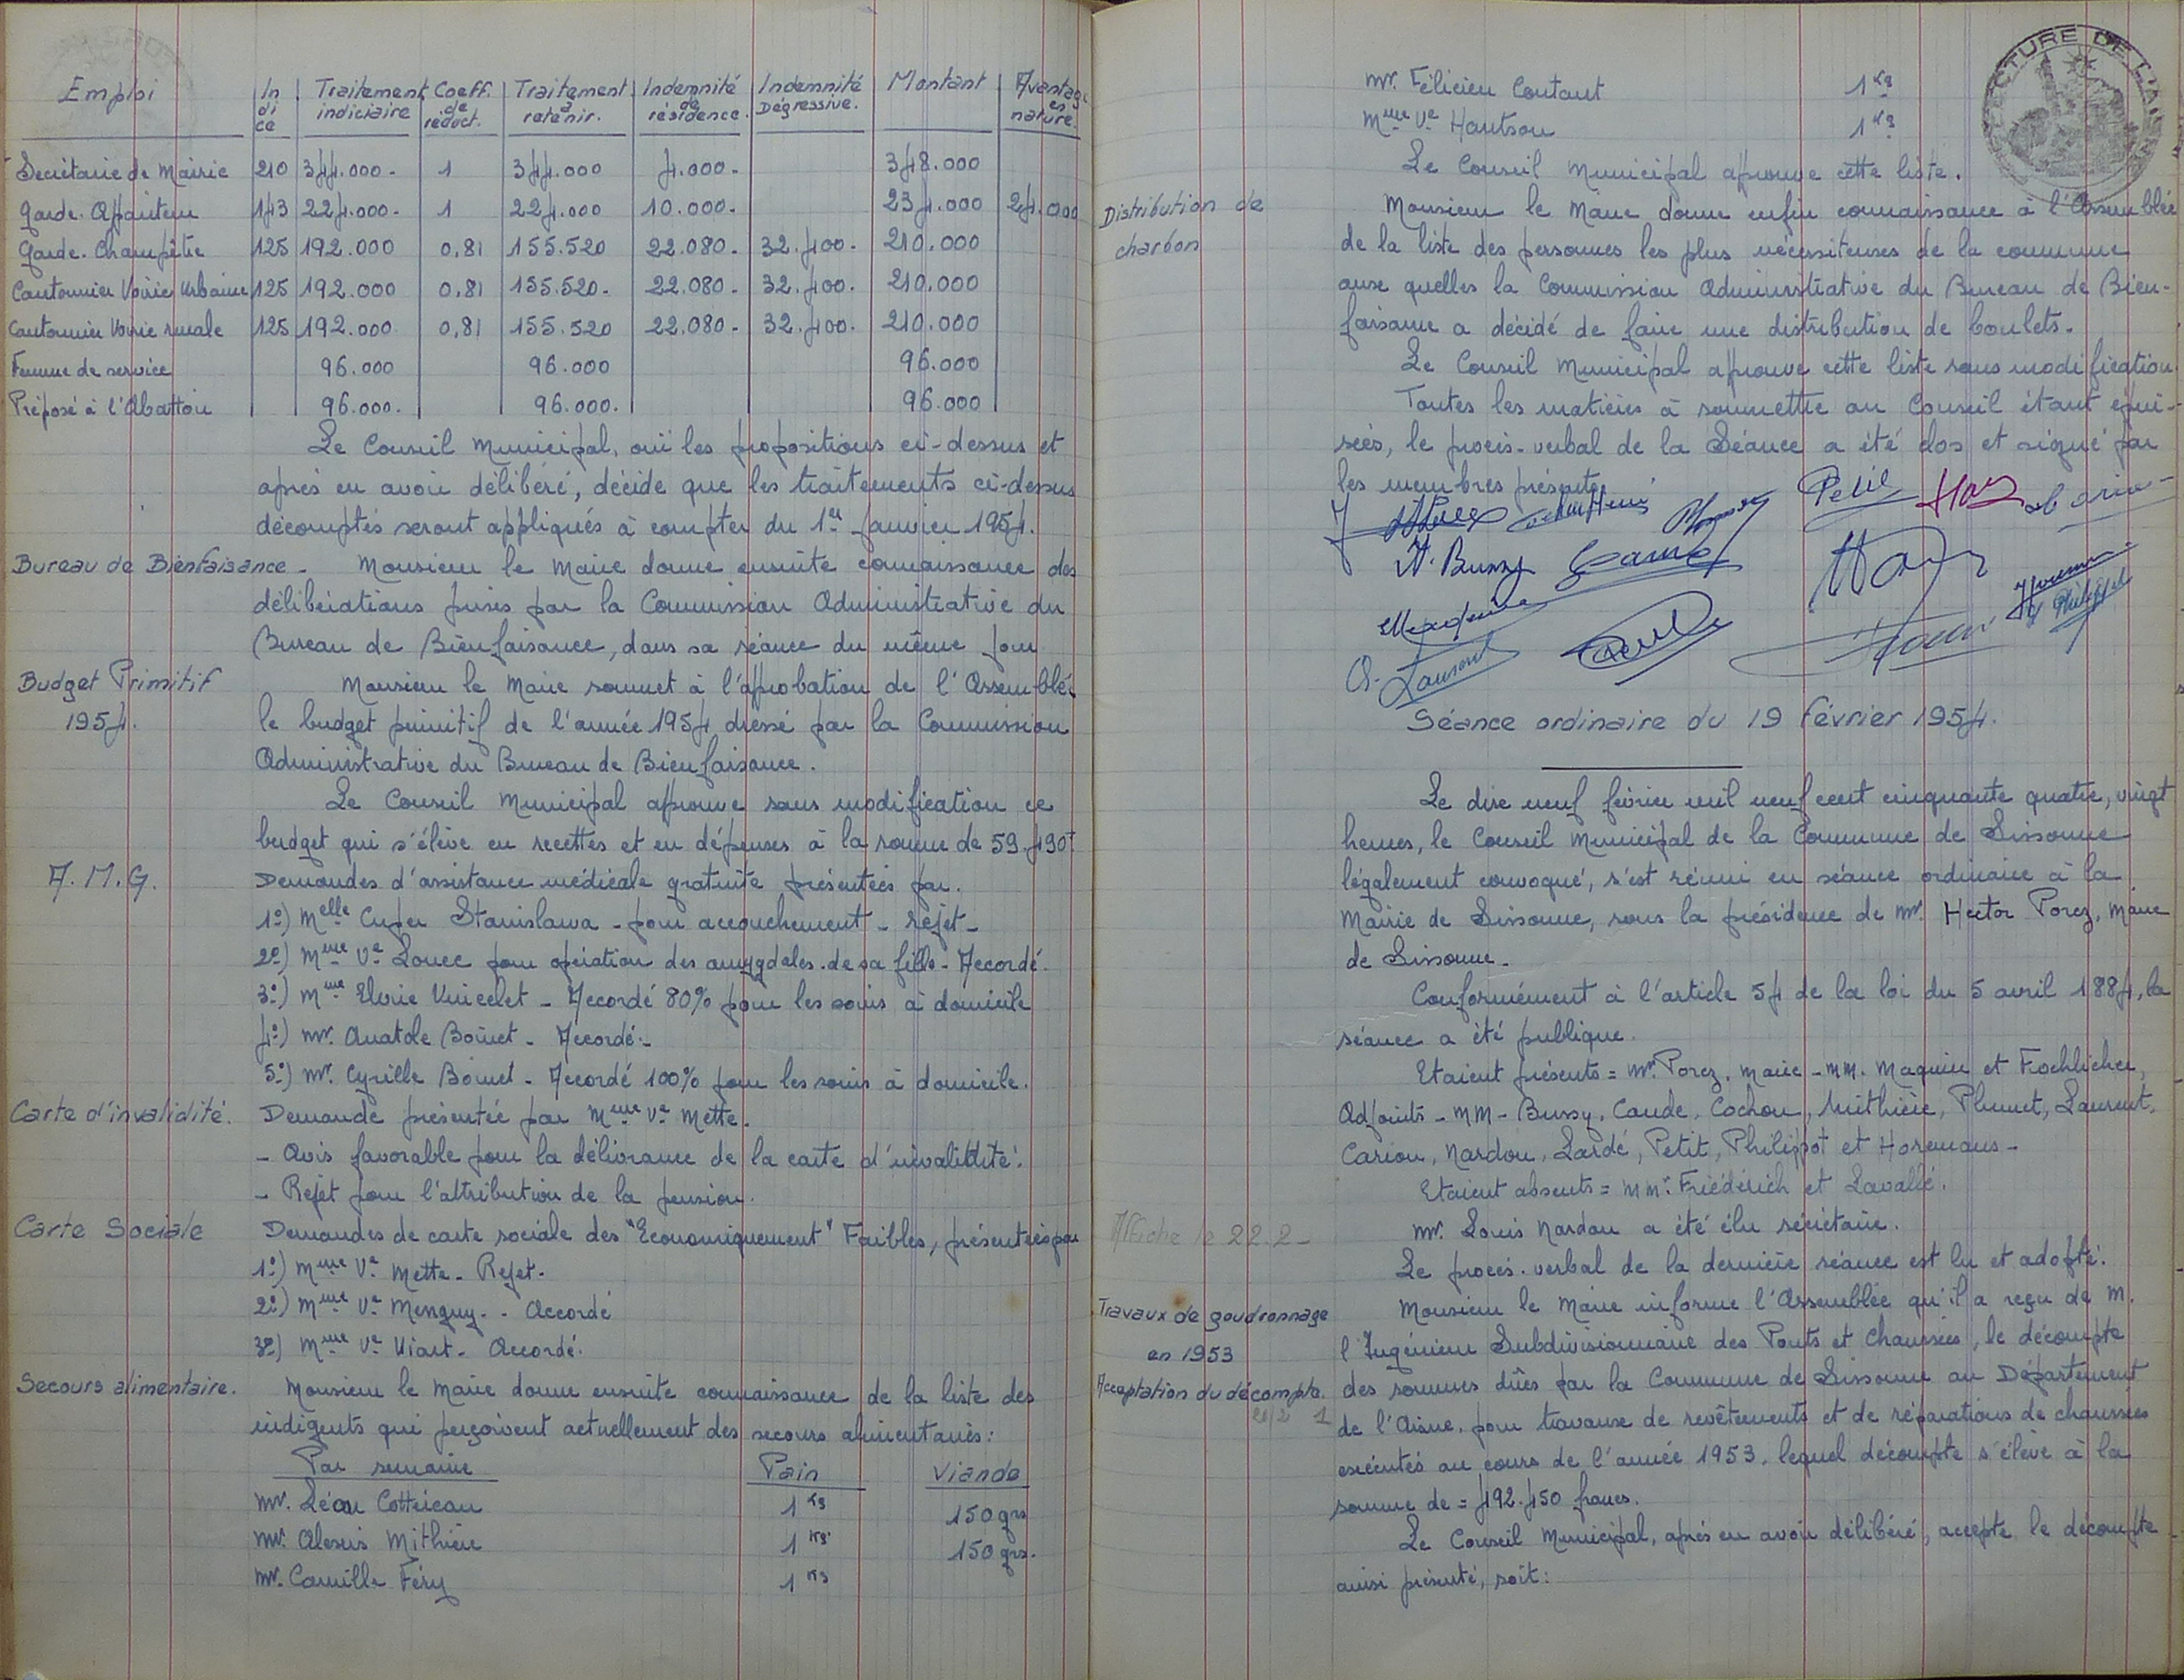 Emploi | In di ce | Traitement indiciaire | Coeff. de réduct. | Traitement à retenir. | Indemnité de résidence. | Indemnité Dégressive. | Montant | Avantage en nature.
Secrétaire de Mairie | 210 | 344.000 - | 1 | 344.000 | 4.000 - | | 348.000
Garde. Appariteur | 143 | 224.000 - | 1 | 224.000 | 10.000 - | | 234.000 | 24.000
Garde. Champêtre | 125 | 192.000 | 0,81 | 155.520 | 22.080 - | 32.400 - | 210.000
Cantonnier Voirie Urbaine | 125 | 192.000 | 0,81 | 155.520 - | 22.080 - | 32.400 - | 210.000
Cantonnier Voirie rurale | 125 | 192.000 | 0,81 | 155.520 | 22.080 - | 32.400 - | 210.000
Femme de service | | 96.000 | | 96.000 | | | 96.000
Préposé à l'Abattoir | | 96.000. | | 96.000. | | | 96.000
Le Conseil Municipal, ouï les propositions ci-dessus et
après en avoir délibéré, décide que les traitements ci-dessus
décomptés seront appliqués à compter du 1er Janvier 1954.
Bureau de Bienfaisance - Monsieur le Maire donne ensuite connaissance des
délibérations prises par la Commission Administrative du
Bureau de Bienfaisance, dans sa séance du même jour
Budget Primitif 1954.
Monsieur le Maire soumet à l'approbation de l'Assemblée
le budget primitif de l'année 1954 dressé par la Commission
Administrative du Bureau de Bienfaisance.
Le Conseil Municipal approuve sans modification ce
budget qui s'élève en recettes et en dépenses à la somme de 59.490f
A.M.G. Demandes d'assistance médicale gratuite présentées par.
1°) Melle Cuper Stanislawa - pour accouchement - rejet -
2°) Mme Ve Louec pour opération des amygdales de sa fille - Accordé.
3°) Mme Elvrie Vuicelet - Accordé 80% pour les soins à domicile
4°) Mr. Anatole Boinet - Accordé -
5°) Mr. Cyrille Boinet - Accordé 100% pour les soins à domicile.
Carte d'invalidité. Demande présentée par Mme Ve Mette.
- Avis favorable pour la délivrance de la carte d'invalidité.
- Rejet pour l'attribution de la pension.
Carte Sociale Demandes de carte sociale des "Economiquement" Faibles, présentées par
1°) Mme Ve Mette - Rejet -
2°) Mme Ve Menguy - - Accordé
3°) Mme Ve Viart - Accordé.
Secours alimentaire. Monsieur le Maire donne ensuite connaissance de la liste des
indigents qui perçoivent actuellement des secours alimentaires :
Par semaine | Pain | Viande
Mr. Léon Cottreau | 1 Kg | 150 grs
Mr. Alexis Mithière | 1 Kg | 150 grs.
Mr. Camille Féry | 1 Kg
Mr. Félicien Coutant 1 Kg
Mme Ve Hautson 1 Kg
Le Conseil Municipal aprouve cette liste.
Distribution de charbon
Monsieur le Maire donne enfin connaissance à l'Assemblée
de la liste des personnes les plus nécessiteuses de la commune
aux quelles la Commission Administrative du Bureau de Bien-
faisance a décidé de faire une distribution de boulets.
Le Conseil Municipal aprouve cette liste sans modification
Toutes les matières à soumettre au Conseil étant épui-
sées, le procès-verbal de la Séance a été clos et signé par
les membres présents.
Petit
H. Bussy
A. Laurent
Philippot
Séance ordinaire du 19 Février 1954.
Le dix neuf février mil neuf cent cinquante quatre, vingt
heures, le Conseil Municipal de la Commune de Sissonne
légalement convoqué, s'est réuni en séance ordinaire à la
Mairie de Sissonne, sous la présidence de Mr. Hector Porez, Maire
de Sissonne -
Conformément à l'article 54 de la loi du 5 avril 1884, la
séance a été publique.
Etaient présents = Mr. Porez, Maire - MM. Maquin et Froehlicher,
Adjoints - MM - Bussy, Caude, Cochon, Mithière, Plumet, Laurent,
Cariou, Nardou, Lardé, Petit, Philippot et Horemans -
Etaient absents = MMr. Friédérich et Lavallé.
Affiché le 22.2 - Mr. Louis Nardou a été élu sécrétaire.
Le procès-verbal de la dernière séance est lu et adopté.
Travaux de goudronnage en 1953
Acceptation du décompte.
Monsieur le Maire informe l'Assemblée qu'il a reçu de M.
l'Ingénieur Subdivisionnaire des Ponts et Chaussées, le décompte
des sommes dûes par la Commune de Sissonne au Département
de l'Aisne, pour travaux de revêtements et de réparations de chaussées
exécutés au cours de l'année 1953, lequel décompte s'élève à la
somme de = 492.450 francs.
Le Conseil Municipal, après en avoir délibéré, accepte le décompte
ainsi présenté, soit :